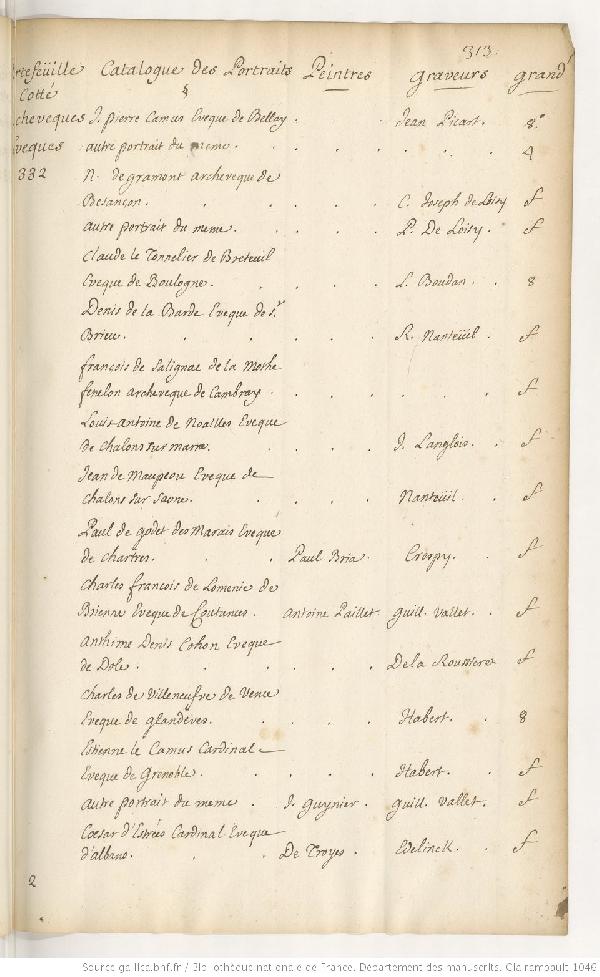 313.
rtefeüille Catalogue des Portraits Peintres graveurs grand
Cotté
cheveques J. pierre Camus Eveque de Bellay . . Jean Picart. 8.°
veques autre portrait du meme . . . . . . . 4
332 N. de gramont archeveque de
Besancon . . . . . C. Joseph de Loisy f
autre portrait du meme. . . . . P. De Loisy . f
Claude le Tonnelier de Breteuil
Eveque de Boulogne . . . . . L. Boudan . . 8
Denis de la Barde Eveque de S.t
Brieu . . . . . . R. Nanteüil . f
françois de Salignac de la Mothe
fenelon archeveque de Cambray . . . . . . . f
Louis-antoine de Noailles Eveque
de Chalons sur marne . . . . J. Langlois . f
Jean de Maupeou Eveque de
Chalons sur Saone . . . . . Nanteüil . . f
Paul de godet des Marais Eveque
de chartres . . . Paul Bria . Crespy . . f
Charles françois de Lomenie de
Brienne Eveque de Coutances . Antoine Paillet . guill. Vallet . f
Anthime Denis Cohon Eveque
de Dole . . . . . . De la Roussiere f
charles de Villeneufve de Vence
Eveque de glandeves . . . . . Habert . . 8
Estienne le Camus Cardinal
Eveque de Grenoble . . . . . Habert . . f
autre portrait du meme . J. guynier . guill. Vallet . f
Cæsar d'Estrées Cardinal Eveque
d'albano . . . De Troyes . Edelinck . . f
2
Source gallica.bnf.fr / Bibliothèque nationale de France. Département des manuscrits. Clairambault 1046